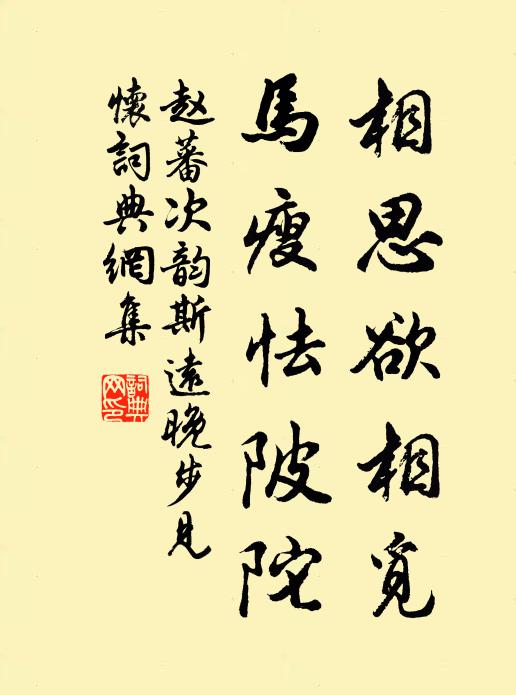 相思欲相覓
馬瘦怯陂陀
赵蕃次韵斯遠晚步見
懷詞典網集
詞典网印